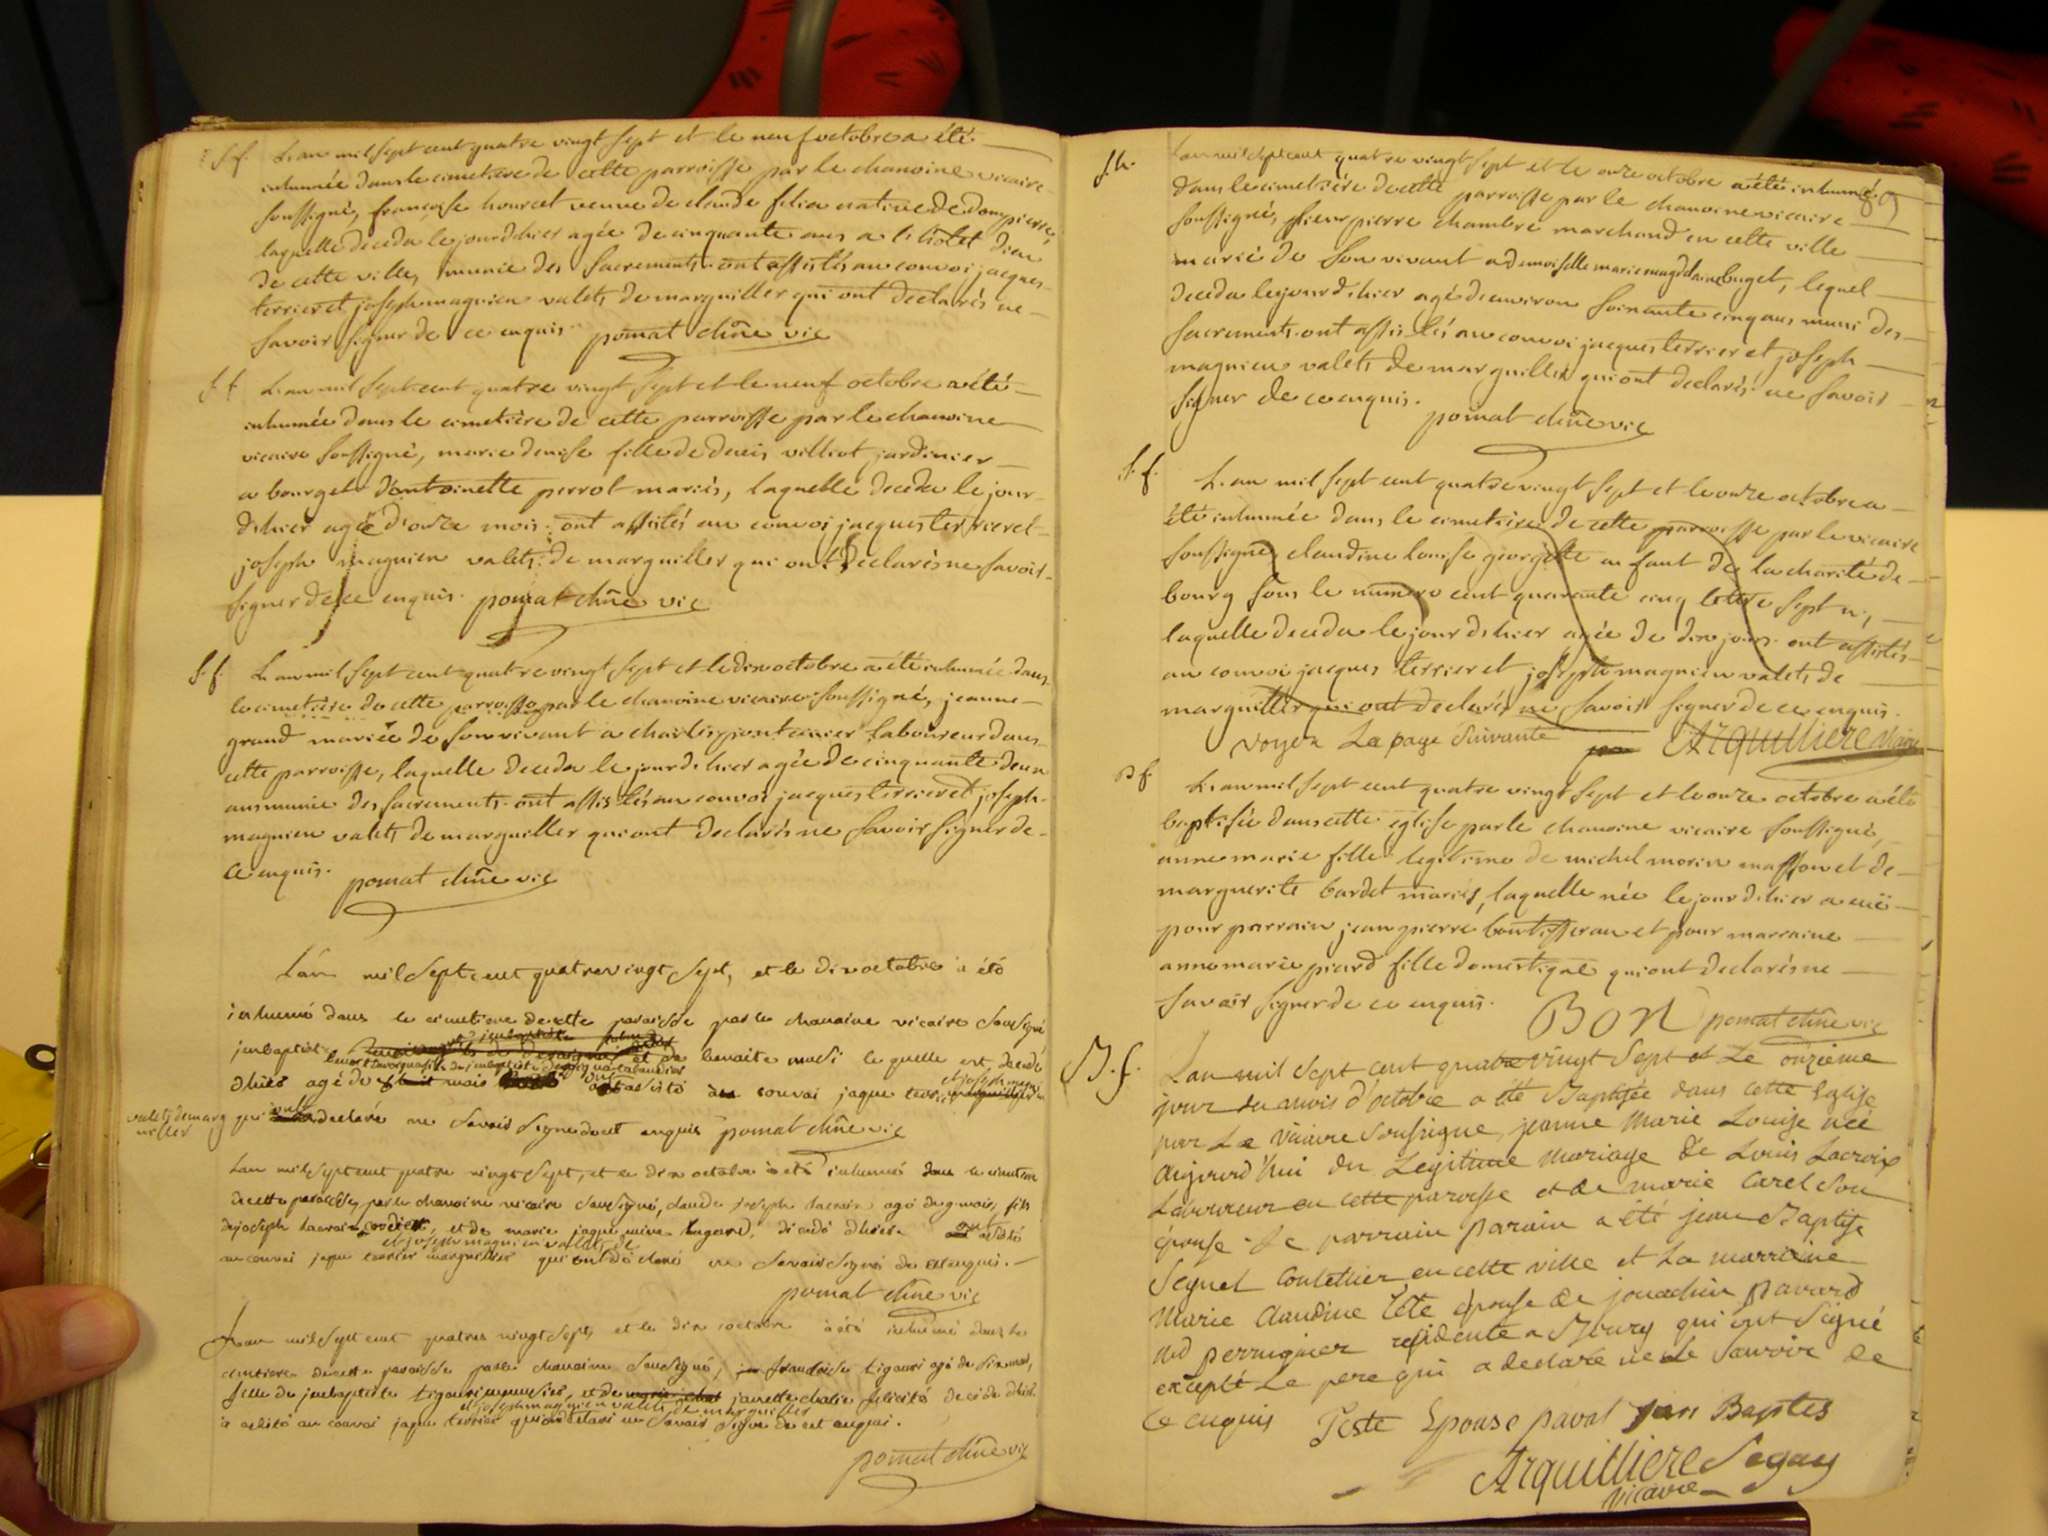 S.f. L'an mil sept cent quatre vingt sept et le neuf octobre a été
inhumée dans le cimetiere de cette parroisse par le chanoine vicaire
soussigné, francoise houret veuve de claude filia native de dompierre,
laquelle deceda le jour d'hier agée de cinquante ans a l'hotel dieu
de cette ville, munie des sacrements. ont assistés au convoi jacques
terrier et joseph magnien valets de marguiller qui ont declarés ne
savoir signer de ce enquis. pomat chne vic
S.f. L'an mil sept cent quatre vingt sept et le neuf octobre a été
inhumée dans le cimetière de cette parroisse par le chanoine
vicaire soussigné, marie denise fille de denis villiot jardinier
a bourg et d'antoinette perrot mariés, laquelle deceda le jour
d'hier agée d'onze mois. ont assistés au convoi jacques terrier et
joseph magnien valets de marguiller qui ont declarés ne savoir
signer de ce enquis. pomat chne vic
S.f. L'an mil sept cent quatre vingt sept et le dix octobre a été inhumée dans
le cimetière de cette parroisse par le chanoine vicaire soussigné, jeanne
grand mariée de son vivant a charles laboureur dans
cette parroisse, laquelle deceda le jour d'hier agée de cinquante deux
ans munie des sacrements. ont assistés au convoi jacques terrier et joseph
magnien valets de marguiller qui ont declarés ne savoir signer de
ce enquis. pomat chne vic
L'an mil sept cent quatre vingt sept, et le dix octobre a été
inhumé dans le cimetiere de cette paroisse par le chanoine vicaire sousigné
jeanbaptiste et de benoite laquelle est decedé
d'hier agé de mois a asisté au convoi jaque terrier et joseph magnien
valets de marguiller qui ont declaré ne savoir signe de cet enquis pomat chne vic
L'an mil sept cent quatre vingt sept, et le dix octobre a été inhumé dans le cimetiere
de cette paroisse, par le chanoine vicaire sousigné, claude joseph lacroix agé de mois, fils
de joseph lacroix cordier, et de marie jaquemine, decedé d'hier. ont asisté
au convoi jaque terrier et joseph magnien valets de marguiller qui ont declaré ne savoir signé de cet enquis.
pomat chne vic
L'an mil sept cent quatre vingt sept, et le dix octobre a été inhumé dans le
cimetiere de cette paroisse par le chanoine sousigné, francoise agé de six mois,
fille de jeanbaptiste et de decedé d'hier.
a asisté au convoi jaque terrier et joseph magnien valets de marguiller qui ont declaré ne savoir signe de cet enquis.
pomat chne vic
89
S.h. L'an mil sept cent quatre vingt sept et le onze octobre a été inhumé
dans le cimetière de cette parroisse par le chanoine vicaire
soussigné, sieur pierre chambre marchand en cette ville
marié de son vivant a demoiselle marie magdelaine buget, lequel
deceda le jour d'hier agé d'environ soixante cinq ans muni des
sacrements. ont assistés au convoi jacques terrier et joseph
magnien valets de marguiller qui ont declarés ne savoir
signer de ce enquis.
pomat chne vic
S.f. L'an mil sept cent quatre vingt sept et le onze octobre a
été inhumée dans le cimetière de cette parroisse par le vicaire
soussigné claudine louise georgette enfant de la charité de
bourg sous le numero cent quarante cinq lettre sept n,
laquelle deceda le jour d'hier agée de dix jours. ont assistés
au convoi jacques terrier et joseph magnien valets de
marguiller qui ont declarés ne savoir signer de ce enquis.
voyez La page suivante Arquilliere vicaire
B f. L'an mil sept cent quatre vingt sept et le onze octobre a été
baptisée dans cette église par le chanoine vicaire soussigné,
anne marie fille legitime de michel morin masson et de
marguerite bardet mariés, laquelle née le jour d'hier a eüe
pour parrain jean pierre et pour marraine
anne marie picard fille domestique qui ont declarés ne
savoir signer de ce enquis.
BON pomat chne vic
B.f. L'an mil sept cent quatre vingt sept et Le onzieme
jour du mois d'octobre a été Baptisée dans cette Eglise
par Le vicaire soussigné, jeanne Marie Louise née
aujourd'hui du Legitime mariage de Louis Lacroix
Laboureur en cette paroisse et de marie Carel son
épouse. Le parrain parain a été jean Baptiste
Segnel Coutellier en cette ville et La marraine
Marie Claudine Tête épouse de joachin pavard
md perruquier residente a Bourg qui ont signé
excepté Le pere qui a declaré ne Le savoir de
ce enquis Teste Epouse paval jan Baptes
Arquilliere Segay
vicaire